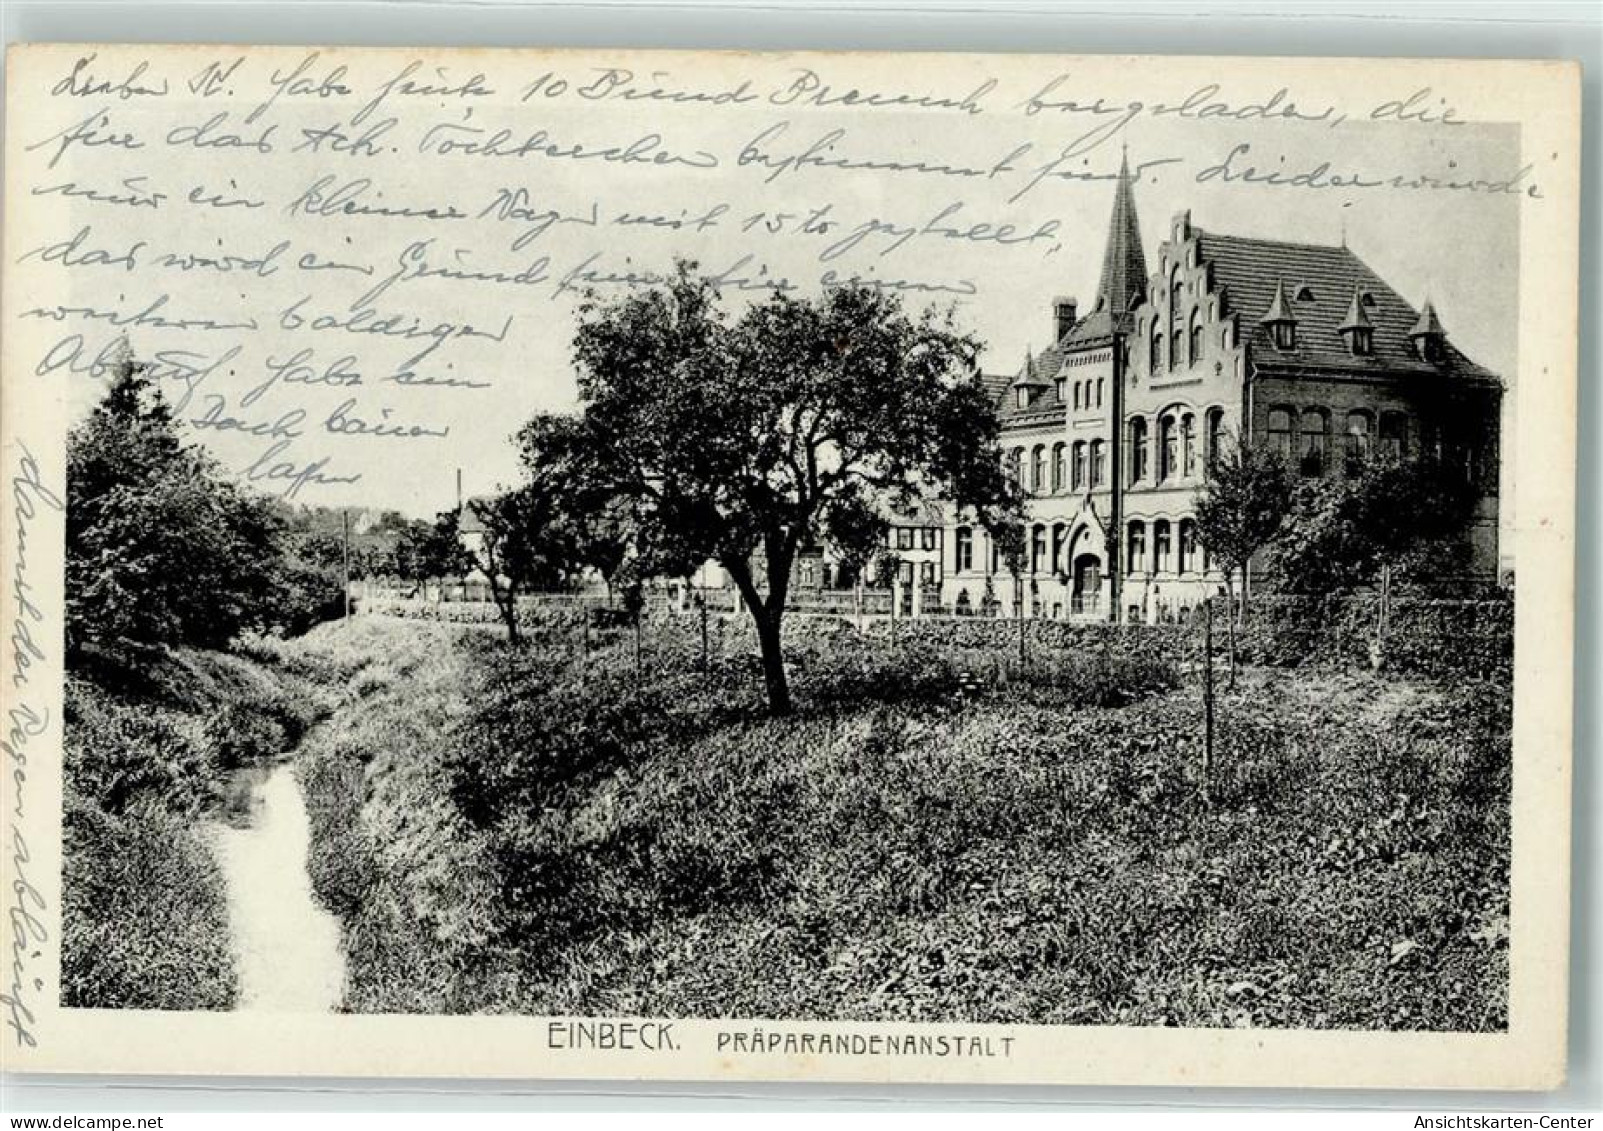 Lieber K. Habe heute 10 Bund beigeladen, die
für das Ach. Töchterchen bestimmt sind. Leider wurde
nur ein kleiner Wagen mit 15 to gestellt,
das wird ein Grund sein für einen
weiteren baldigen
Abruf. Habe ein
Dach bauen
lassen
damit der Regen abläuft
EINBECK. PRÄPARANDENANSTALT
Ansichtskarten-Center